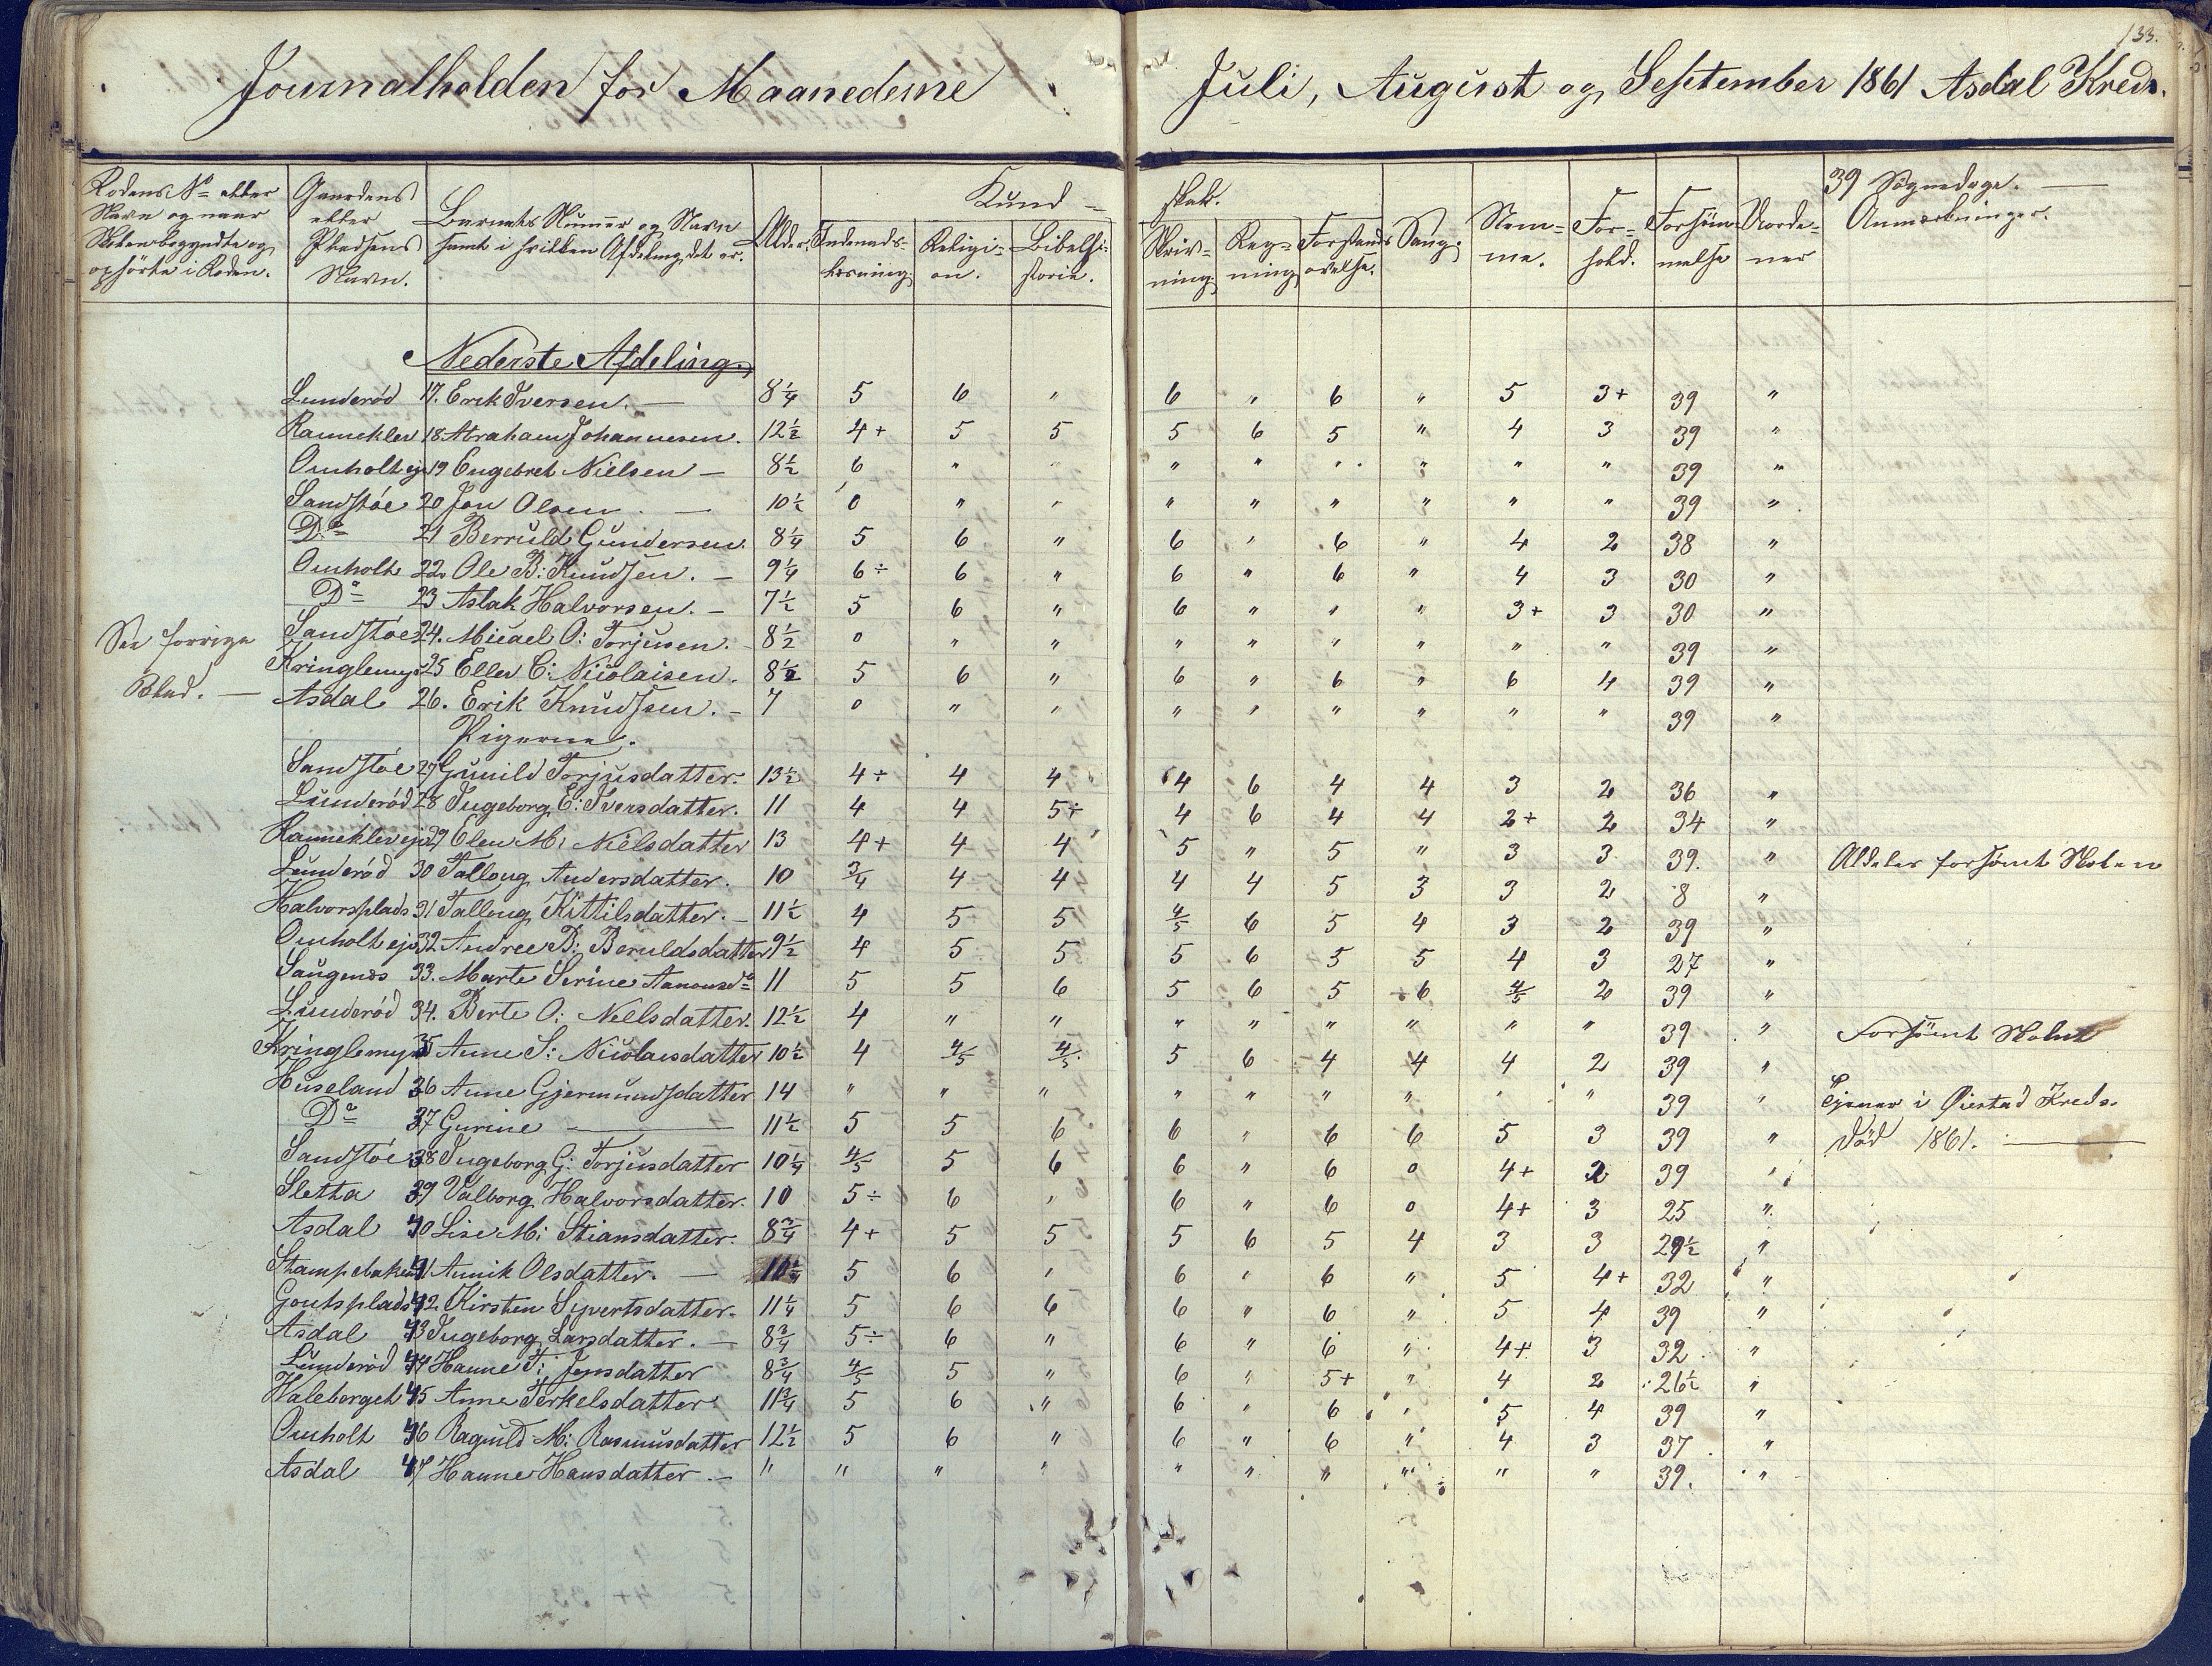 133.
Journalholden for Maanederne Juli, August og September 1861 Asdal Kreds.
Rodens No eller Navn og naar Skolen begyndte og ophörte i Roden. Gaardens eller Pladsens Navn. Barnets Nummer og Navn samt i hvilken Afdeling det er. Alder. Kund- skab. Indenads- læsning. Religi- on. Bibelhi- storie. Skriv- ning. Reg- ning. Forstands övelse. Sang. Nem- me. For- hold. Forsöm- melse Vorde- ner 39 Sögnedage. — Anmærkninger.
Nederste Afdeling.
Lunderöd 17. Erik Iversen. — 8 1/4 5 6 " 6 " 6 " 5 3+ 39 "
Rannekley 18 Abraham Johannesen. 12 1/2 4+ 5 5 5 6 5 " 4 3 39 "
Omholt eje 19 Engebret Nielsen — 8 1/2 6 " " " " " " " " 39 "
Sandstöe 20 Jon Olsen. — 10 1/2 0 " " " " " " " " 39 "
Do 21 Berruld Gundersen. 8 1/4 5 6 " 6 " 6 " 4 2 38 "
Omholt 22. Ole B: Knudsen. — 9 1/4 6÷ 6 " 6 " 6 " 4 3 30 "
Do 23 Aslak Halvorsen. — 7 1/2 5 6 " 6 " " " 3+ 3 30 "
See forrige Sandstöe 24. Micael O: Torjusen. 8 1/2 0 " " " " " " " " 39 "
Kringlemyr 25 Ellev C: Nicolaisen. 8 1/2 5 6 " 6 " 6 " 6 4 39 "
Blad. — Asdal 26. Erik Knudsen. — 7 0 " " " " " " " " 39 "
Pigerne.
Sandstöe 27 Gunild Torjusdatter. 13 1/2 4÷ 4 4 4 6 4 4 3 2 36 "
Lunderöd 28 Ingeborg E: Iversdatter. 11 4 4 5÷ 4 6 4 4 2+ 2 34 "
Rannekley eje 29 Elen M: Nielsdatter 13 4+ 4 4 5 " 5 " 3 3 39. " Aldeles forsömt Skolen
Lunderöd 30 Talloug Andersdatter. 10 3/4 4 4 4 4 5 3 3 2 8 "
Halvorsplads 31 Talloug Kittilsdatter. — 11 1/2 4 5 5 4/5 6 5 4 3 2 39 "
Omholt eje 32. Andree B: Beruldsdatter 9 1/2 4 5 5 5 6 5 5 4 3 27 "
Saugenæs 33. Marte Serine Aanonsd 11 5 5 6 5 6 5 6 4/5 2 39 "
Lunderöd 34. Berte O: Nielsdatter. 12 1/2 4 " " " " " " " " 39 " Forsömt Skolen
Kringlemyr 35 Anne S: Nicolaisdatter 10 1/2 4 4/5 4/5 5 6 4 4 4 2 39 "
Huseland 36 Anne Gjermundsdatter 14 " " " " " " " " " 39 " Tjener i Öiestad Kreds.
Do 37 Gurine — 11 1/2 5 5 6 6 " 6 6 5 3 39 " död 1861. —
Sandstöe 38 Ingeborg G: Torjusdatter 10 1/4 4/5 5 6 6 " 6 0 4+ 2 39 "
Sletta 39 Valborg Halvorsdatter. 10 5÷ 6 " 6 " 6 0 4+ 3 25 "
Asdal 40 Lise M: Stiansdatter. 8 3/4 4+ 5 5 5 6 5 4 3 3 29 1/2 "
Stampebaken 41 Annik Olsdatter. — 10 1/4 5 6 " 6 " 6 " 5 4+ 32 "
Goutsplads 42 Kirsten Syvertsdatter. 11 1/4 5 6 6 6 " 6 " 5 4 39 "
Asdal 43 Ingeborg Larsdatter. — 8 3/4 5÷ 6 " 6 " 6 " 4+ 3 32 "
Lunderöd 44 Hanne T: Jensdatter 8 3/4 4/5 5 " 6 " 5+ " 4 2 26 1/2 "
Haleborget 45 Anne Terkelsdatter 11 3/4 5 6 " 6 " 6 " 5 4 39 "
Omholt 46 Ragnild M: Rasmusdatter 12 1/2 5 6 " 6 " 6 " 4 3 37 "
Asdal 47 Hanne Hansdatter. — " " " " " " " " " " 39. "